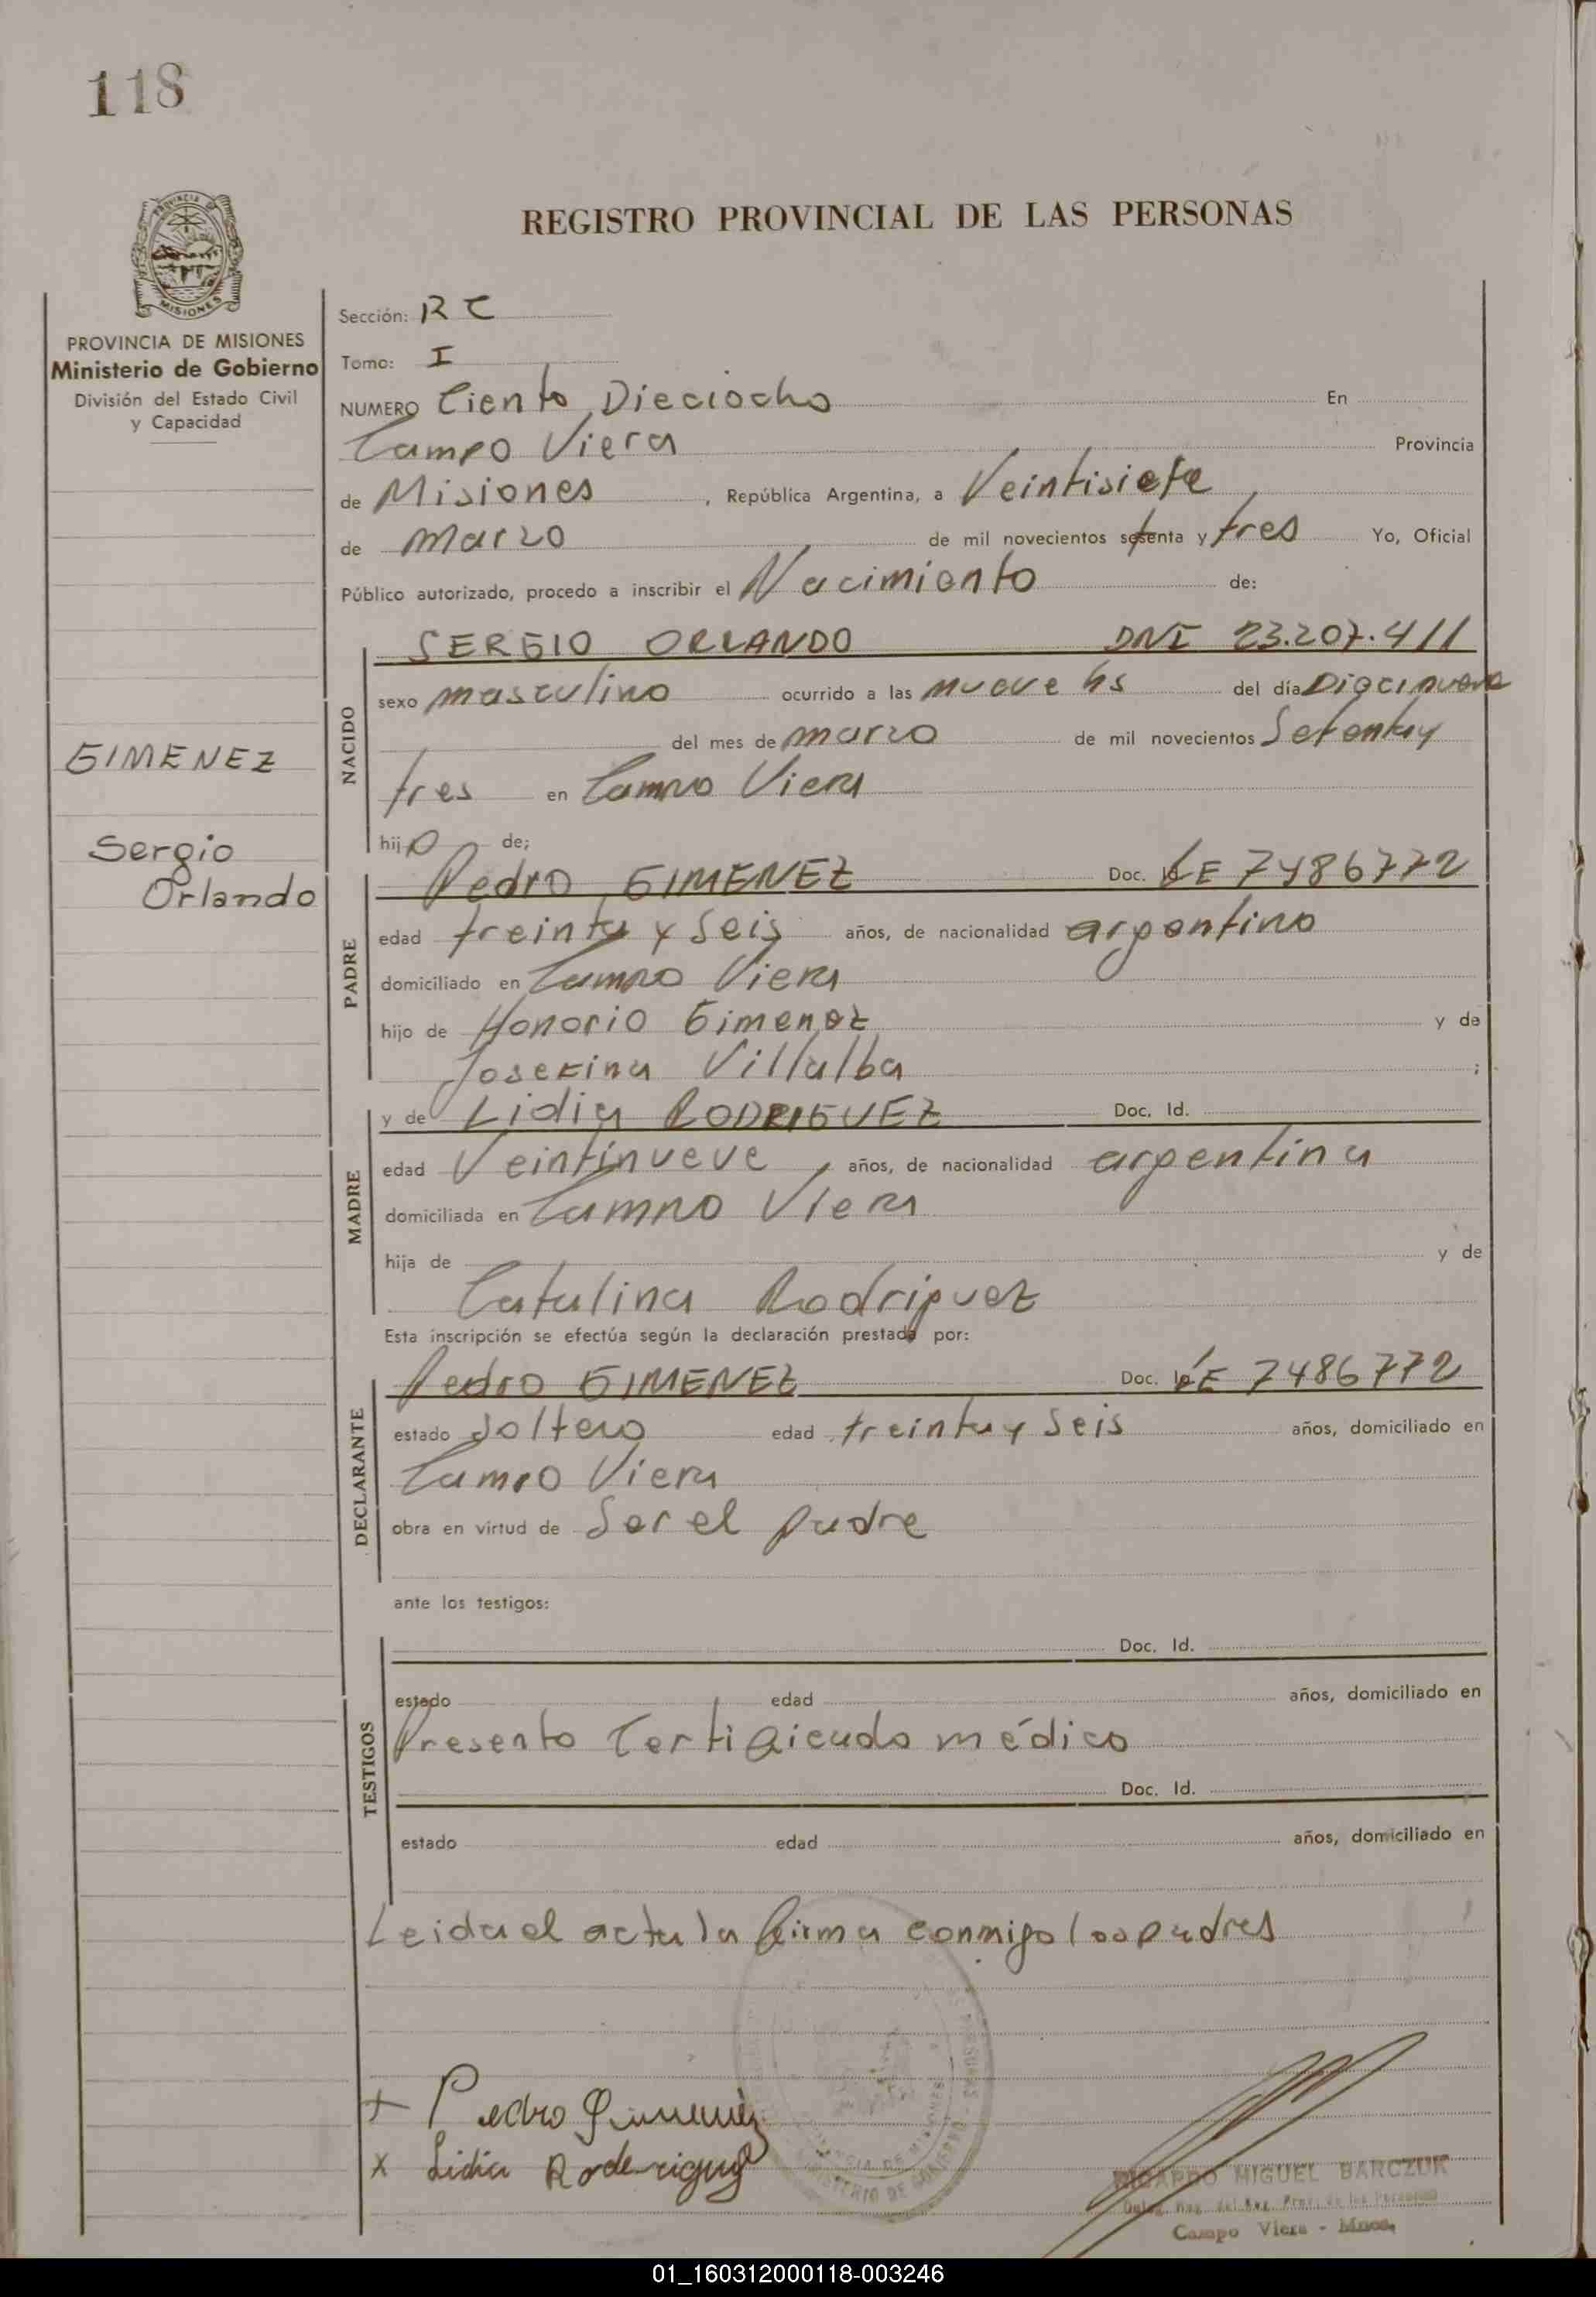 118
REGISTRO PROVINCIAL DE LAS PERSONAS
PROVINCIA DE MISIONES
Ministerio de Gobierno
División del Estado Civil
y Capacidad
GIMENEZ
Sergio
Orlando
Sección: RC
Tomo: I
NUMERO Ciento Dieciocho En
Campo Viera Provincia
de Misiones, República Argentina, a Veintisiete
de marzo de mil novecientos setenta y tres Yo, Oficial
Público autorizado, procedo a inscribir el Nacimiento de:
NACIDO
SERGIO ORLANDO DNI 23.207.411
sexo masculino ocurrido a las nueve hs del día Diecinueve
del mes de marzo de mil novecientos Setenta y
tres en Campo Viera
hijo de;
PADRE
Pedro GIMENEZ Doc. LE 7486772
edad treinta y Seis años, de nacionalidad argentino
domiciliado en Campo Viera
hijo de Honorio Gimenez y de
Josefina Villalba ;
MADRE
y de Lidia RODRIGUEZ Doc. Id.
edad Veintinueve, años, de nacionalidad argentina
domiciliada en Campo Viera
hija de y de
Catalina Rodriguez
Esta inscripción se efectúa según la declaración prestada por:
DECLARANTE
Pedro GIMENEZ Doc. LE 7486772
estado Soltero edad treinta y Seis años, domiciliado en
Campo Viera
obra en virtud de Ser el padre
ante los testigos:
TESTIGOS
Doc. Id.
estado edad años, domiciliado en
Presento Certificado médico
Doc. Id.
estado edad años, domiciliado en
Leida el acta la firma conmigo los padres
+ Pedro Gimenez
x Lidia Roderiguez
PROVINCIA DE MISIONES
MINISTERIO DE GOBIERNO
RICARDO MIGUEL BARCZUK
Campo Viera - Mnes.
01_160312000118-003246